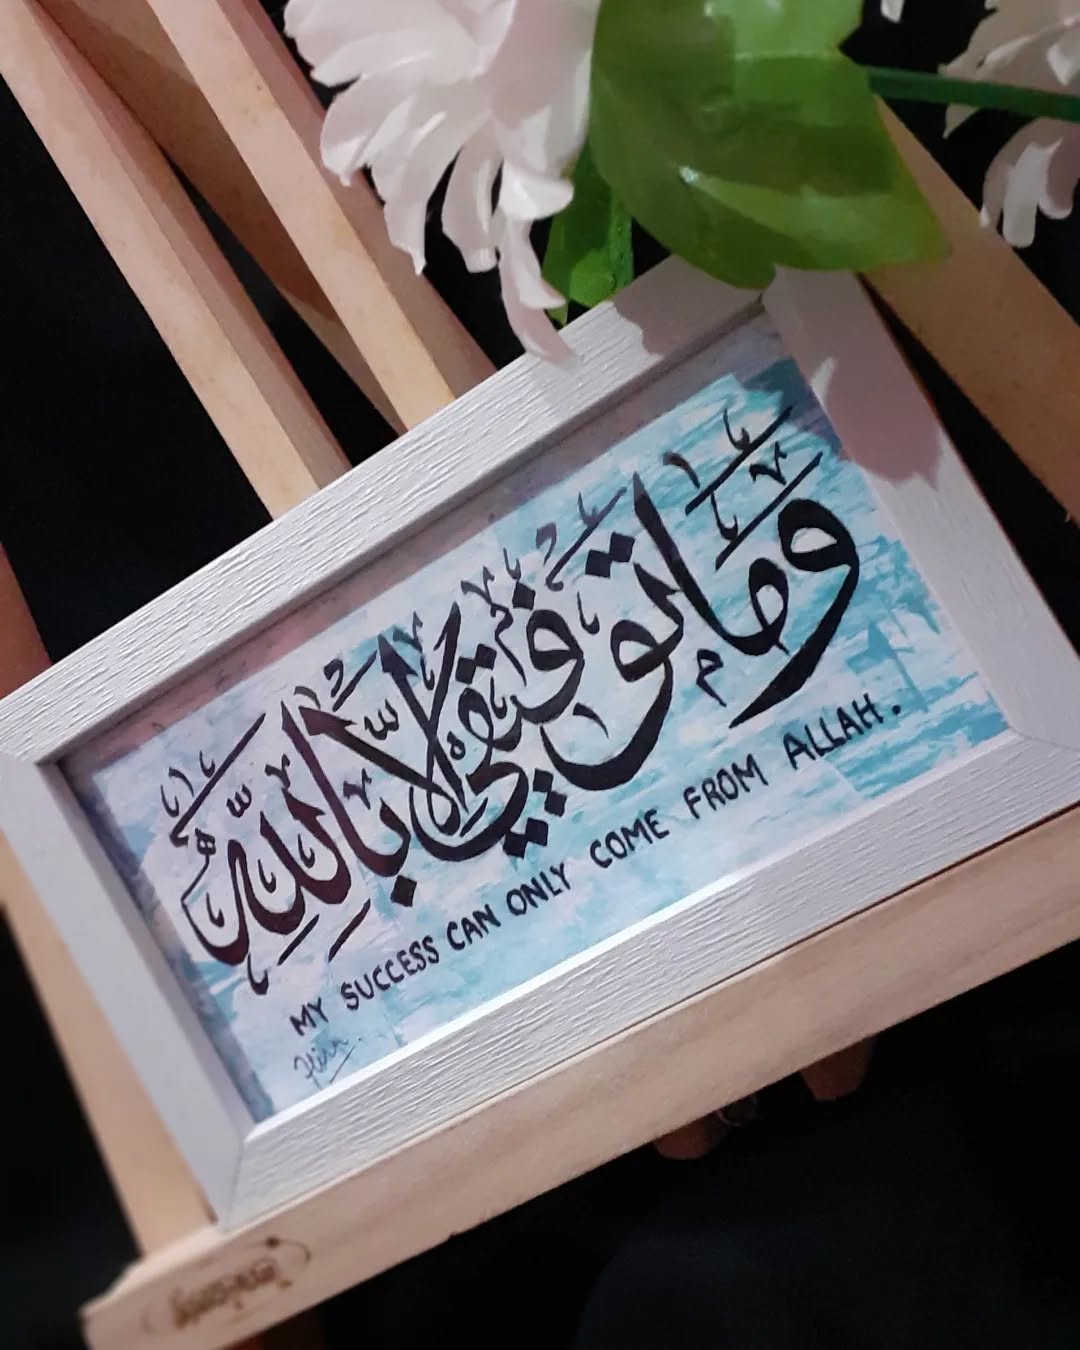 وَمَا تَوْفِيقِي إِلَّا بِاللَّهِ
MY SUCCESS CAN ONLY COME FROM ALLAH.